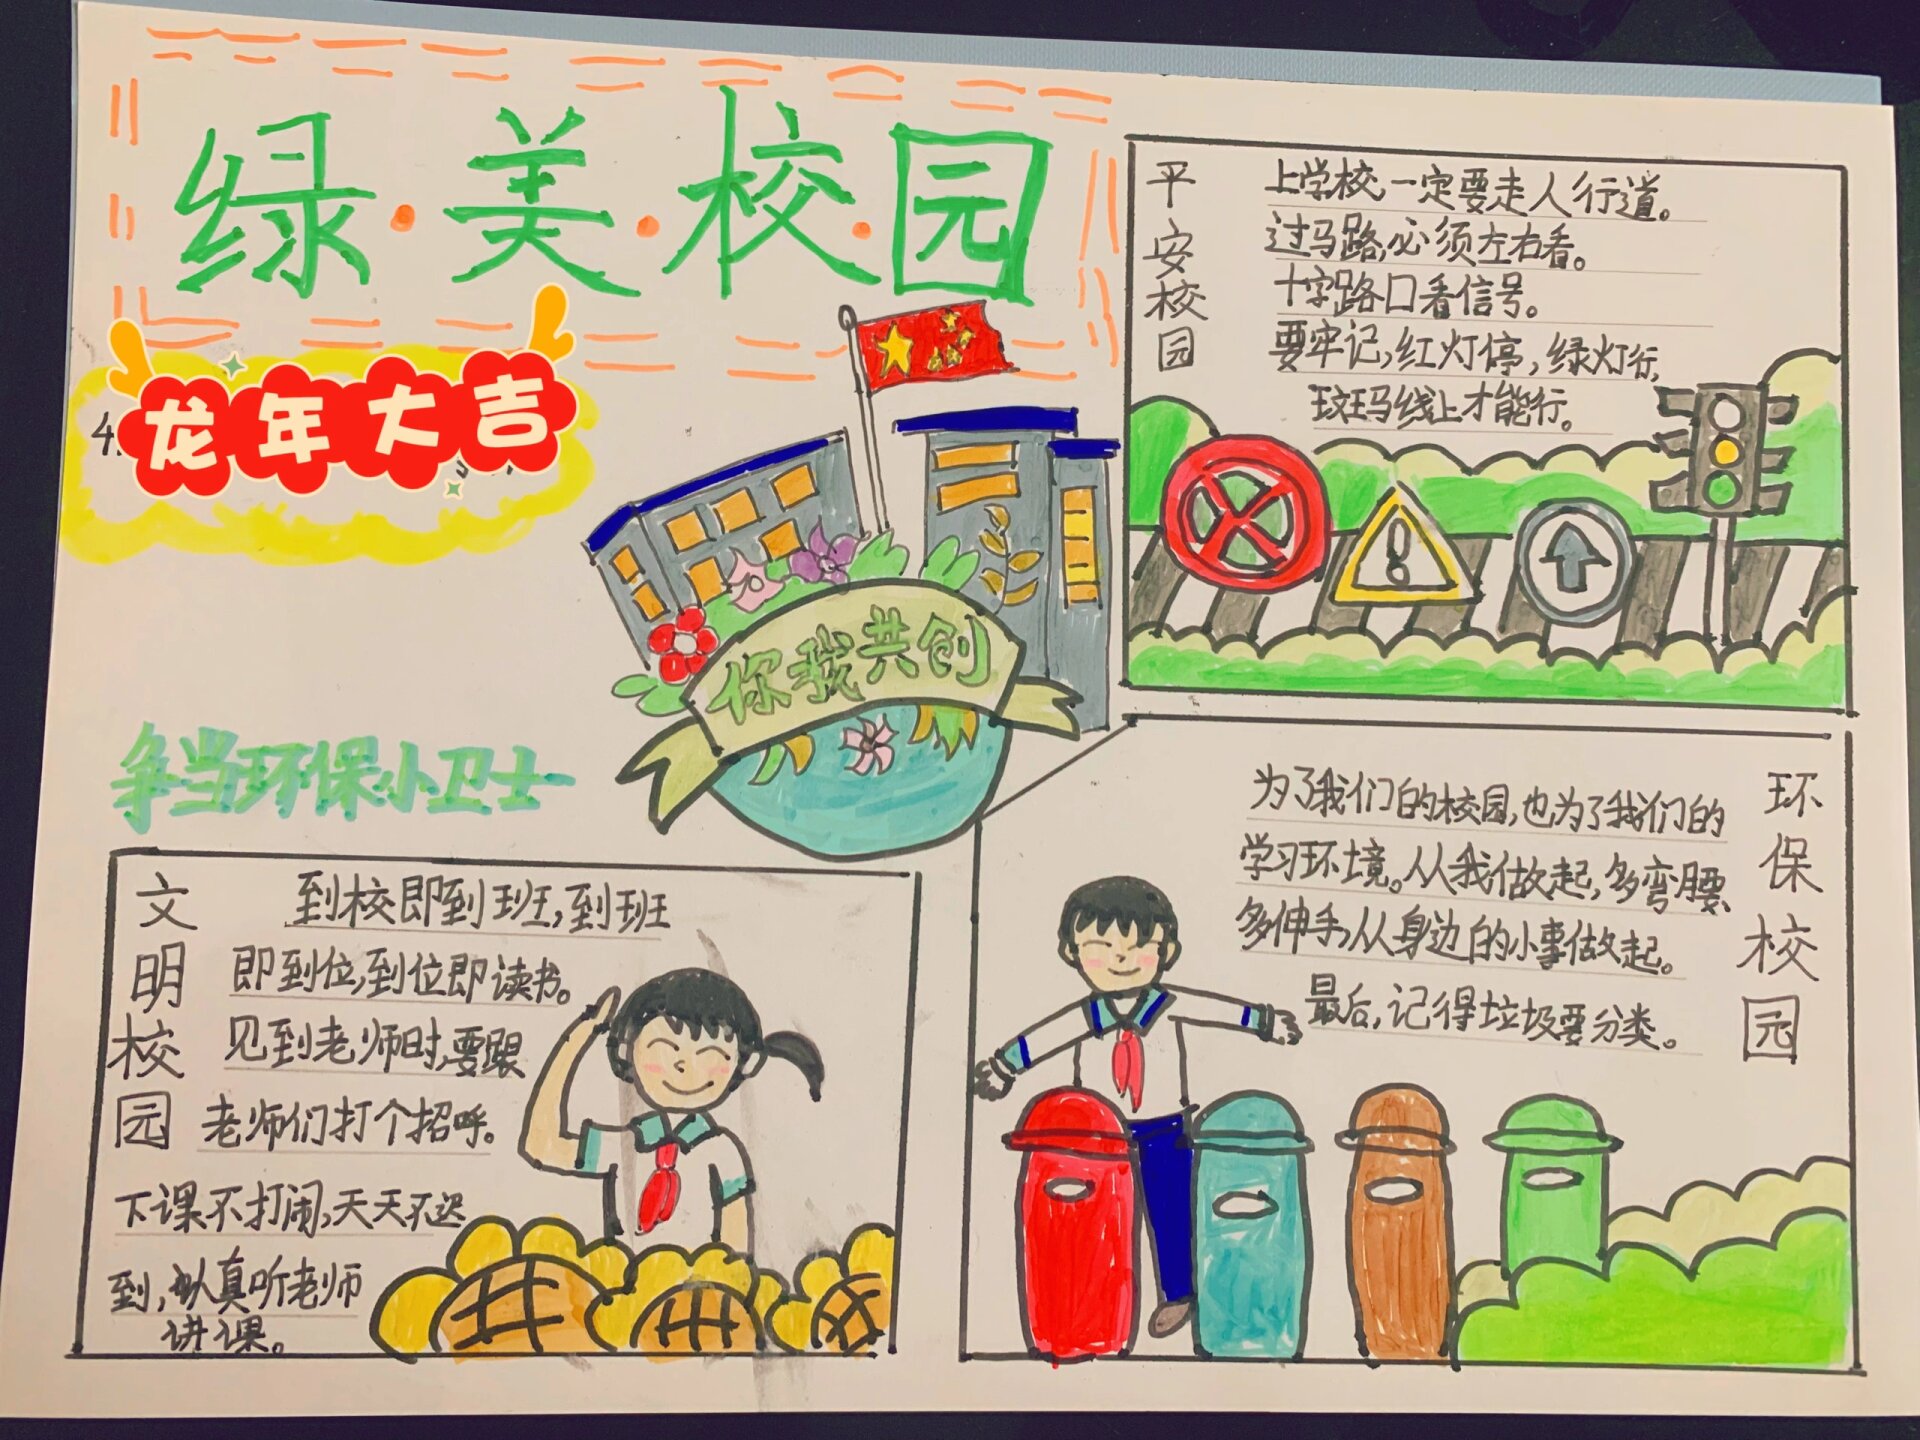 绿·美·校·园
龙年大吉
4.
你我共创
争当环保小卫士
平安校园
上学校,一定要走人行道。
过马路,必须左右看。
十字路口看信号。
要牢记,红灯停,绿灯行,
玟玛线上才能行。
文明校园
到校即到班,到班
即到位,到位即读书。
见到老师时,要跟
老师们打个招呼。
下课不打闹,天天不迟
到,认真听老师
讲课。
环保校园
为了我们的校园,也为了我们的
学习环境。从我做起,多弯腰、
多伸手,从身边的小事做起。
最后,记得垃圾要分类。